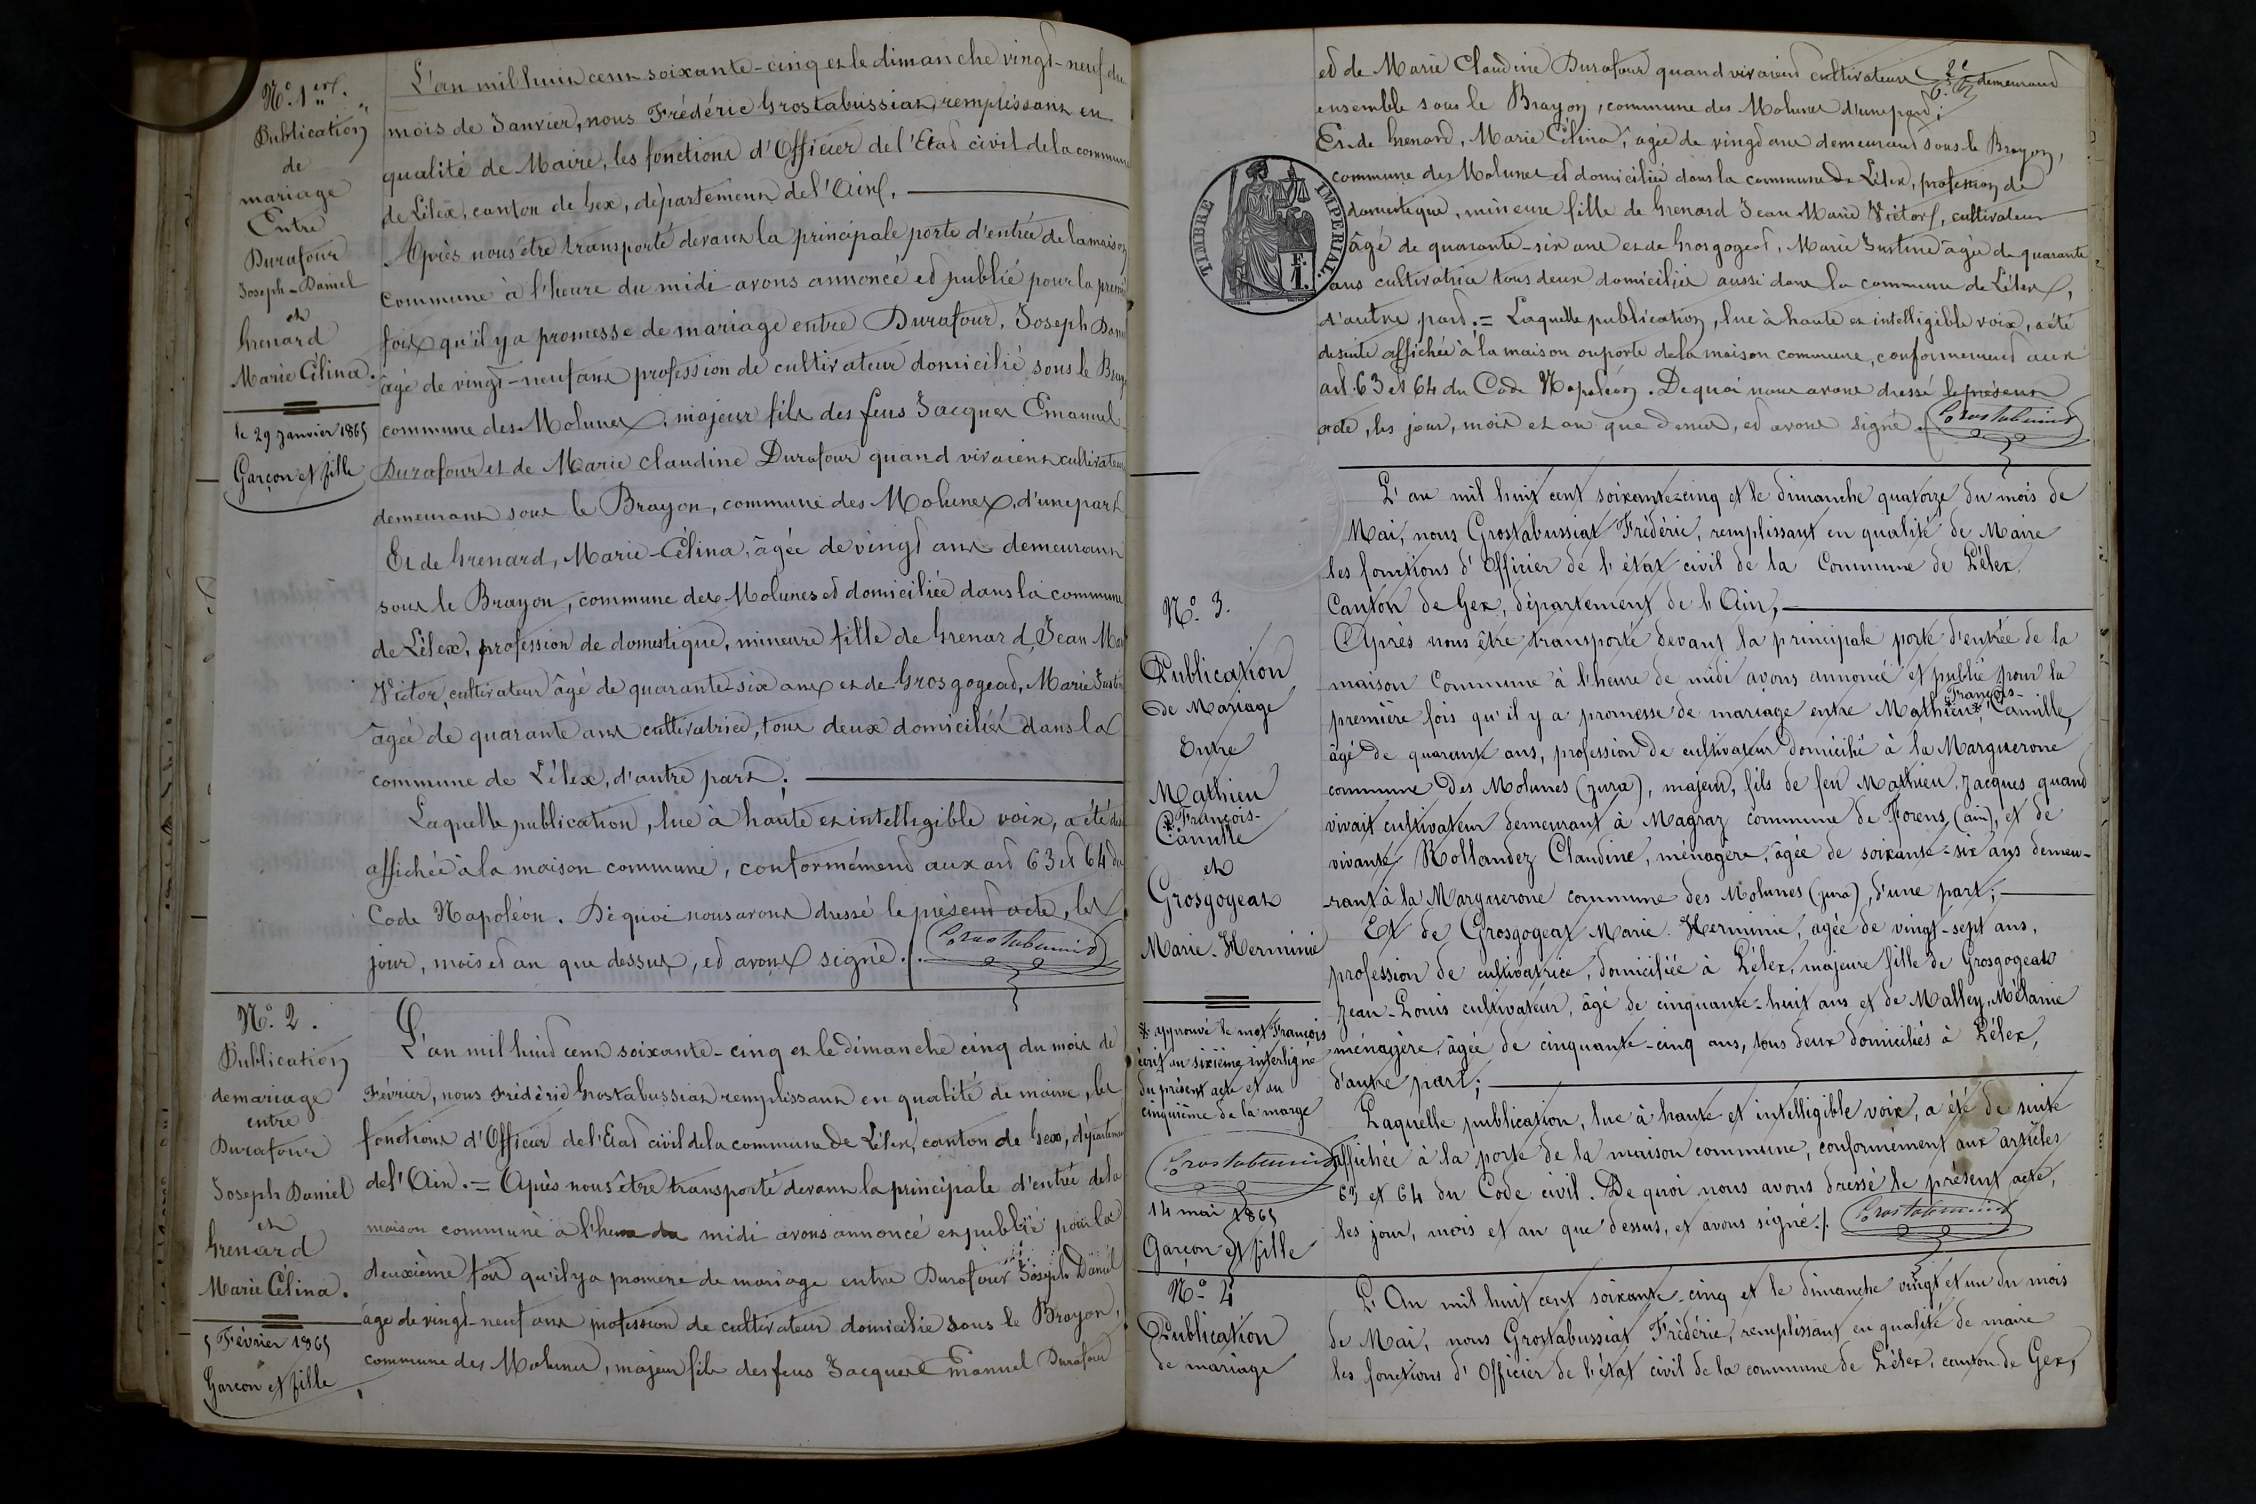 N.° 1er.
Publication
de
mariage
Entre
Durafour
Joseph-Daniel
et
Grenard
Marie Célina.
le 29 Janvier 1865
Garçon et fille
L'an mil huit cent soixante-cinq et le dimanche vingt-neuf du
mois de Janvier, nous Frédéric Grostabussiat, remplissant en
qualité de Maire, les fonctions d'Officier de l'Etat civil de la commune
de Lélex, canton de Gex, département de l'Ain,
Après nous être transporté devant la principale porte d'entrée de la maison
commune à l'heure du midi avons annoncé et publié pour la premiè
fois qu'il y a promesse de mariage entre Durafour, Joseph Dan
âgé de vingt-neuf ans profession de cultivateur domicilié sous le Bray
commune des Molunes, majeur fils des feus Jacques Emanuel
Durafour et de Marie Claudine Durafour quand vivaient cultivateurs
demeurant sous le Brayon, commune des Molunes, d'une part
Et de Grenard, Marie-Célina, âgée de vingt ans demeurant
sous le Brayon, commune des Molunes et domiciliée dans la commune
de Lélex, profession de domestique, mineure fille de Grenard, Jean Mar
Victor, cultivateur âgé de quarante-six ans et de Grosgogeat, Marie Justi
âgée de quarante ans cultivatrice, tous deux domiciliés dans la
commune de Lélex, d'autre part;
Laquelle publication, lue à haute et intelligible voix, a été de
affichée à la maison commune, conformément aux art 63 et 64 du
Code Napoléon. De quoi nous avons dressé le présent acte, les
jour, mois et an que dessus, et avons signé./. Grostabussiat
N.° 2.
Publication
de mariage
entre
Durafour
Joseph Daniel
et
Grenard
Marie Célina.
5 Février 1865
Garçon et fille
L'an mil huit cent soixante-cinq et le dimanche cinq du mois de
Février, nous Frédéric Grostabussiat remplissant en qualité de maire, les
fonctions d'Officier de l'Etat civil de la commune de Lélex, canton de Gex, département
de l'Ain. = Après nous être transporté devant la principale d'entrée de la
maison commune à l'heure du midi avons annoncé et publié pour la
deuxième fois qu'il y a promesse de mariage entre Durafour Joseph Daniel
âgé de vingt-neuf ans profession de cultivateur domicilié sous le Brayon,
commune des Molunes, majeur fils des feus Jacques Emanuel Durafour
et de Marie Claudine Durafour quand vivaient cultivateurs demeurant
ensemble sous le Brayon, commune des Molunes d'une part;
Et de Grenard, Marie Célina, âgée de vingt ans demeurant sous le Brayon,
commune des Molunes et domiciliée dans la commune de Lélex, profession de
domestique, mineure fille de Grenard Jean Marie Victor, cultivateur
âgé de quarante-six ans et de Grosgogeat, Marie Justine âgée de quarante
ans cultivatrice tous deux domiciliés aussi dans la commune de Lélex,
d'autre part; = Laquelle publication, lue à haute et intelligible voix, a été
de suite affichée à la maison ou porte de la maison commune, conformément aux
art. 63 et 64 du Code Napoléon. De quoi nous avons dressé le présent
acte, les jour, mois et an que dessus, et avons signé. Grostabussiat
TIMBRE IMPERIAL
F.
1.
N.° 3.
Publication
de Mariage
Entre
Mathieu
* François-
Camille
et
Grosgogeat
Marie-Herminie
* approuvé le mot François
écrit au sixième interligne
du présent acte et au
cinquième de la marge
Grostabussiat
14 mai 1865
Garçon et fille
L'an mil huit cent soixante-cinq et le dimanche quatorze du mois de
Mai, nous Grostabussiat Frédéric, remplissant en qualité de Maire
les fonctions d'Officier de l'état civil de la Commune de Lélex
Canton de Gex, département de l'Ain,
Après nous être transporté devant la principale porte d'entrée de la
maison Commune à l'heure de midi avons annoncé et publié pour la
François-
première fois qu'il y a promesse de mariage entre Mathieu*, Camille,
âgé de quarante ans, profession de cultivateur domicilié à la Marguerone
commune des Molunes (jura), majeur, fils de feu Mathieu, Jacques quand
vivait cultivateur demeurant à Magraz commune de Forens (ain), et de
vivante Rollandez Claudine, ménagère, âgée de soixante-six ans demeu-
rant à la Marguerone commune des Molunes (jura), d'une part;
Et de Grosgogeat Marie Herminie, âgée de vingt-sept ans,
profession de cultivatrice, domiciliée à Lélex, majeure fille de Grosgogeat
Jean-Louis cultivateur, âgé de cinquante-huit ans et de Malley, Mélanie
ménagère, âgée de cinquante-cinq ans, tous deux domiciliés à Lélex,
d'autre part;
Laquelle publication, lue à haute et intelligible voix, a été de suite
affichée à la porte de la maison commune, conformément aux articles
63 et 64 du Code civil. De quoi nous avons dressé le présent acte,
les jour, mois et an que dessus, et avons signé./. Grostabussiat
N.° 4
Publication
de mariage
L'An mil huit cent soixante-cinq et le dimanche vingt et un du mois
de Mai, nous Grostabussiat Frédéric, remplissant en qualité de maire
les fonctions d'Officier de l'état civil de la commune de Lélex, canton de Gex,